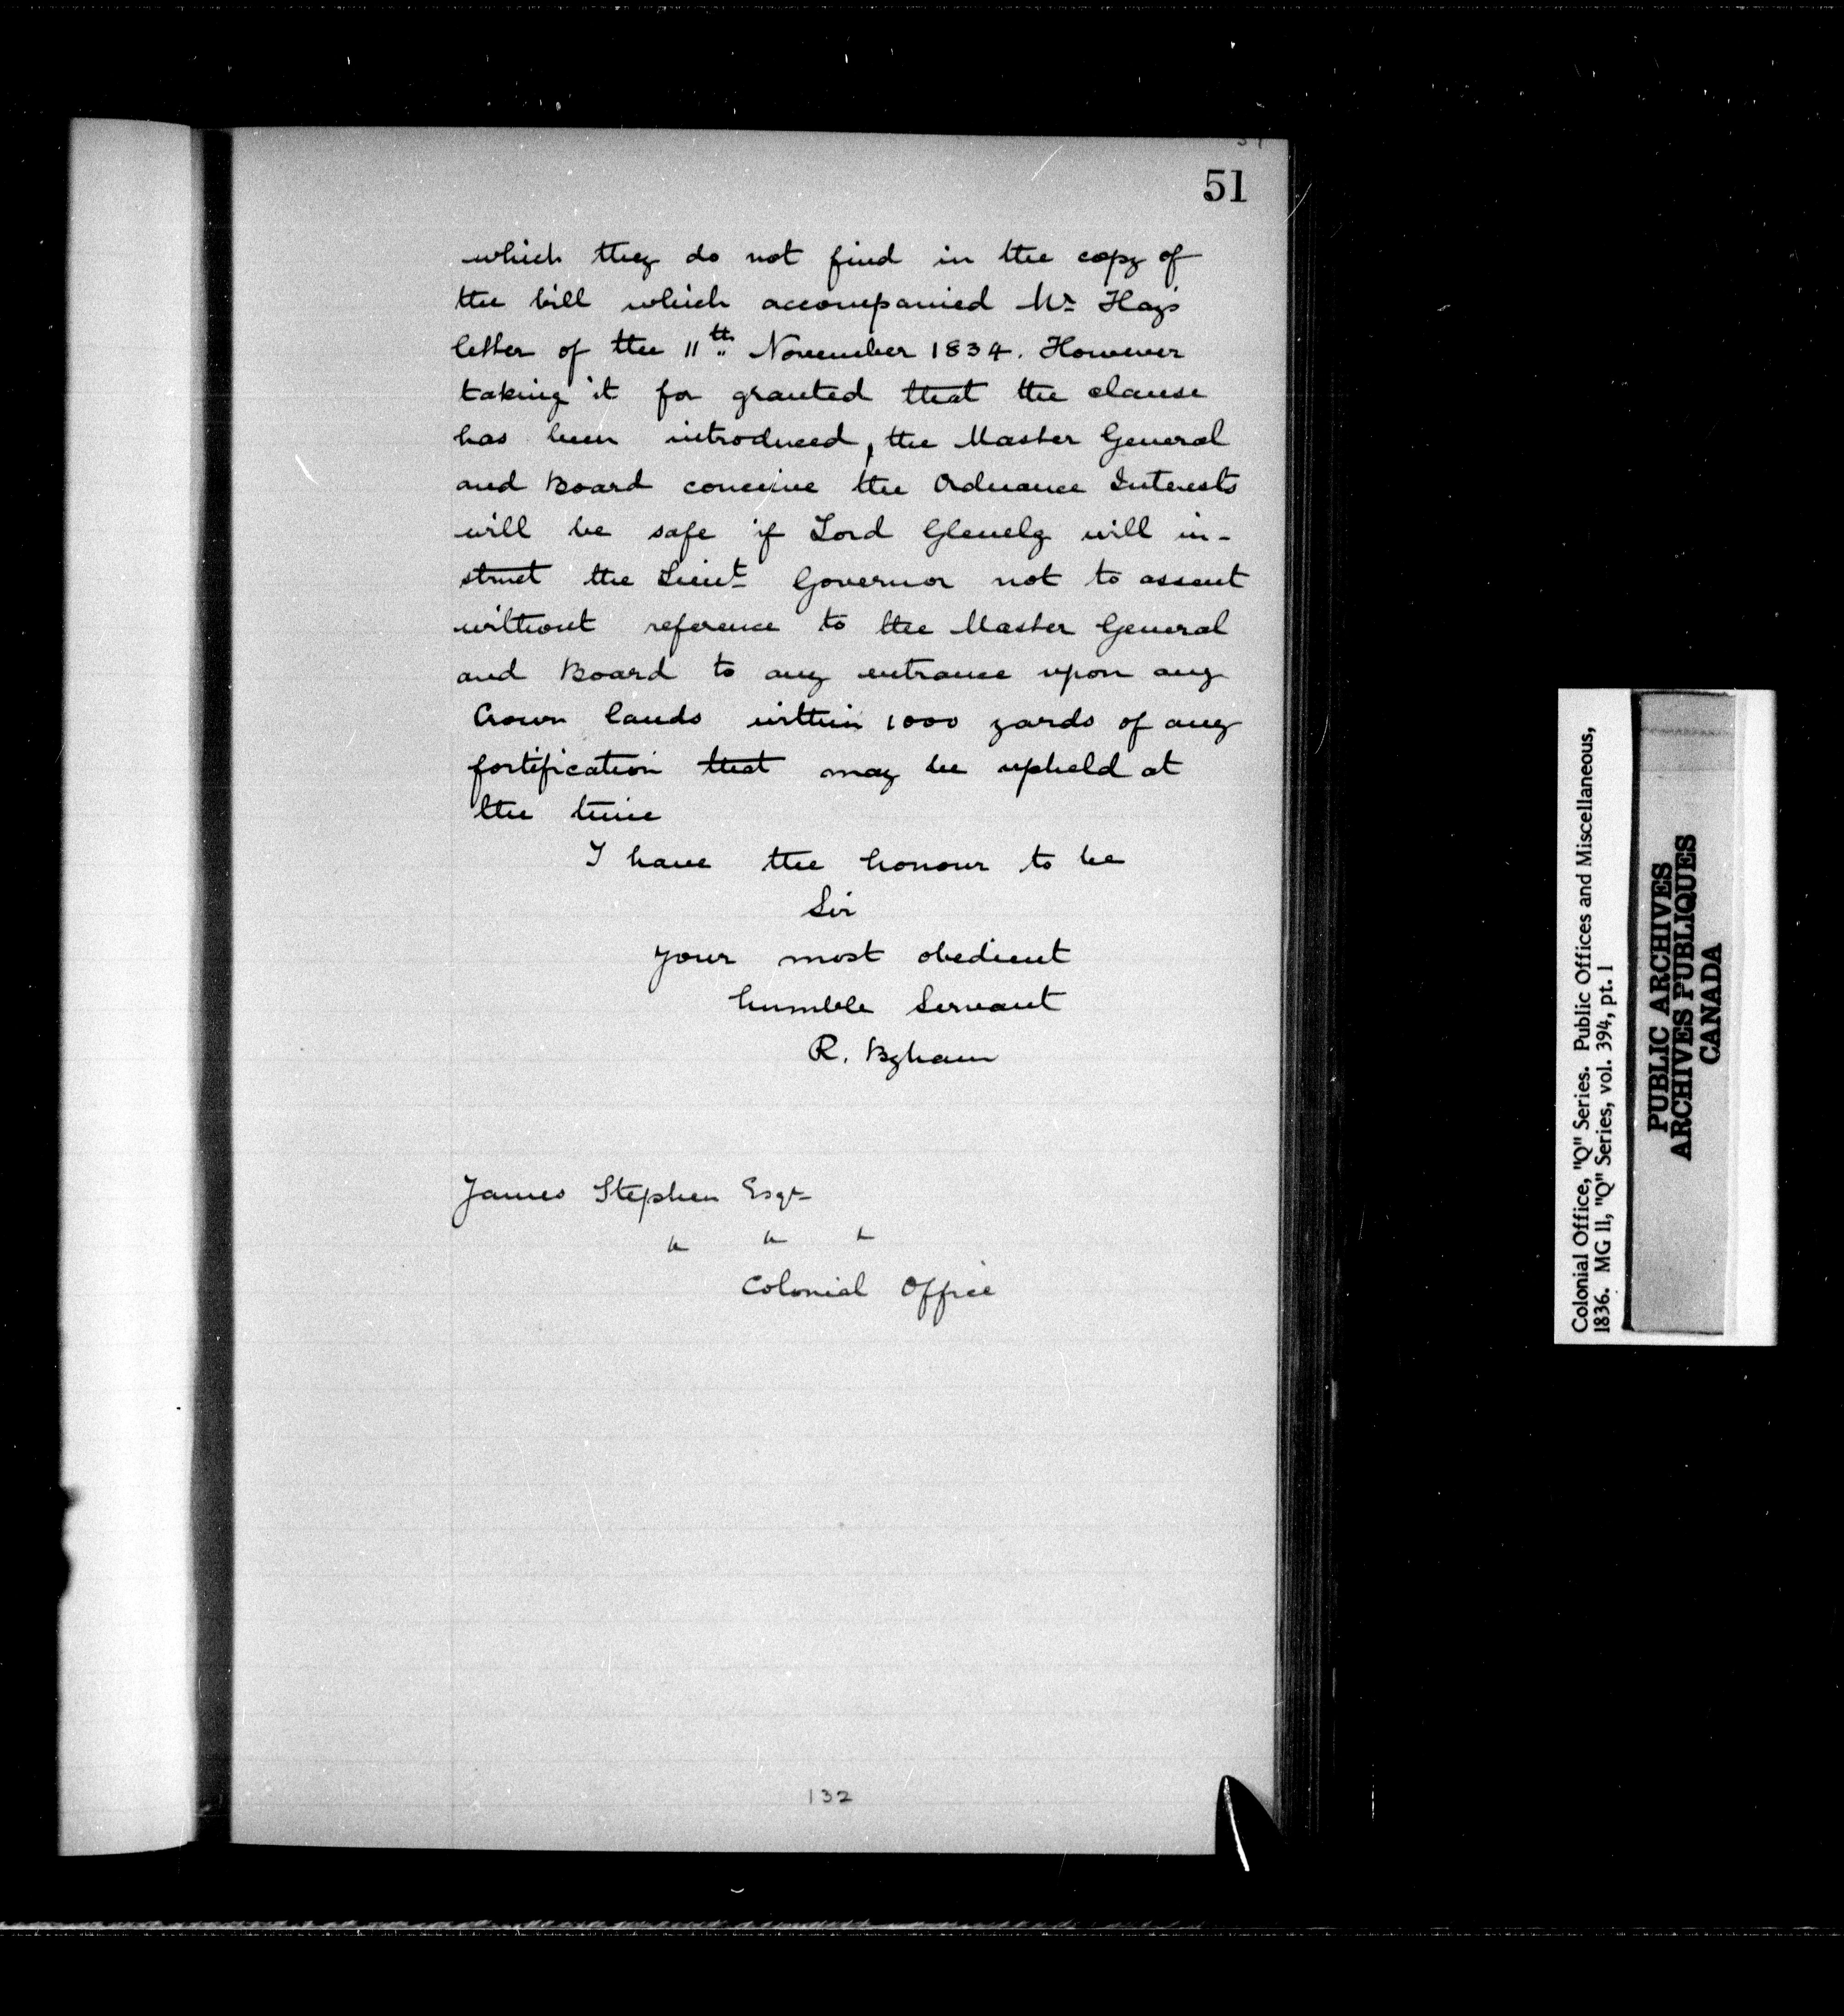 51
which they do not find in the copy of
the bill which accompanied Mr Hay's
letter of the 11th November 1834. However
taking it for granted that the clause
has been introduced, the Master General
and Board conceive the Ordnance Interests
will be safe if Lord Glenelg will in-
struct the Lieut Governor not to assent
without reference to the Master General
and Board to any entrance upon any
Crown lands within 1000 yards of any
fortification that may be upheld at
the time
I have the honour to be
Sir
your most obedient
humble Servant
R. Byham
James Stephen Esqr
" " "
Colonial Office
132
Colonial Office, "Q" Series. Public Offices and Miscellaneous,
1836. MG 11, "Q" Series, vol. 394, pt. 1
PUBLIC ARCHIVES
ARCHIVES PUBLIQUES
CANADA